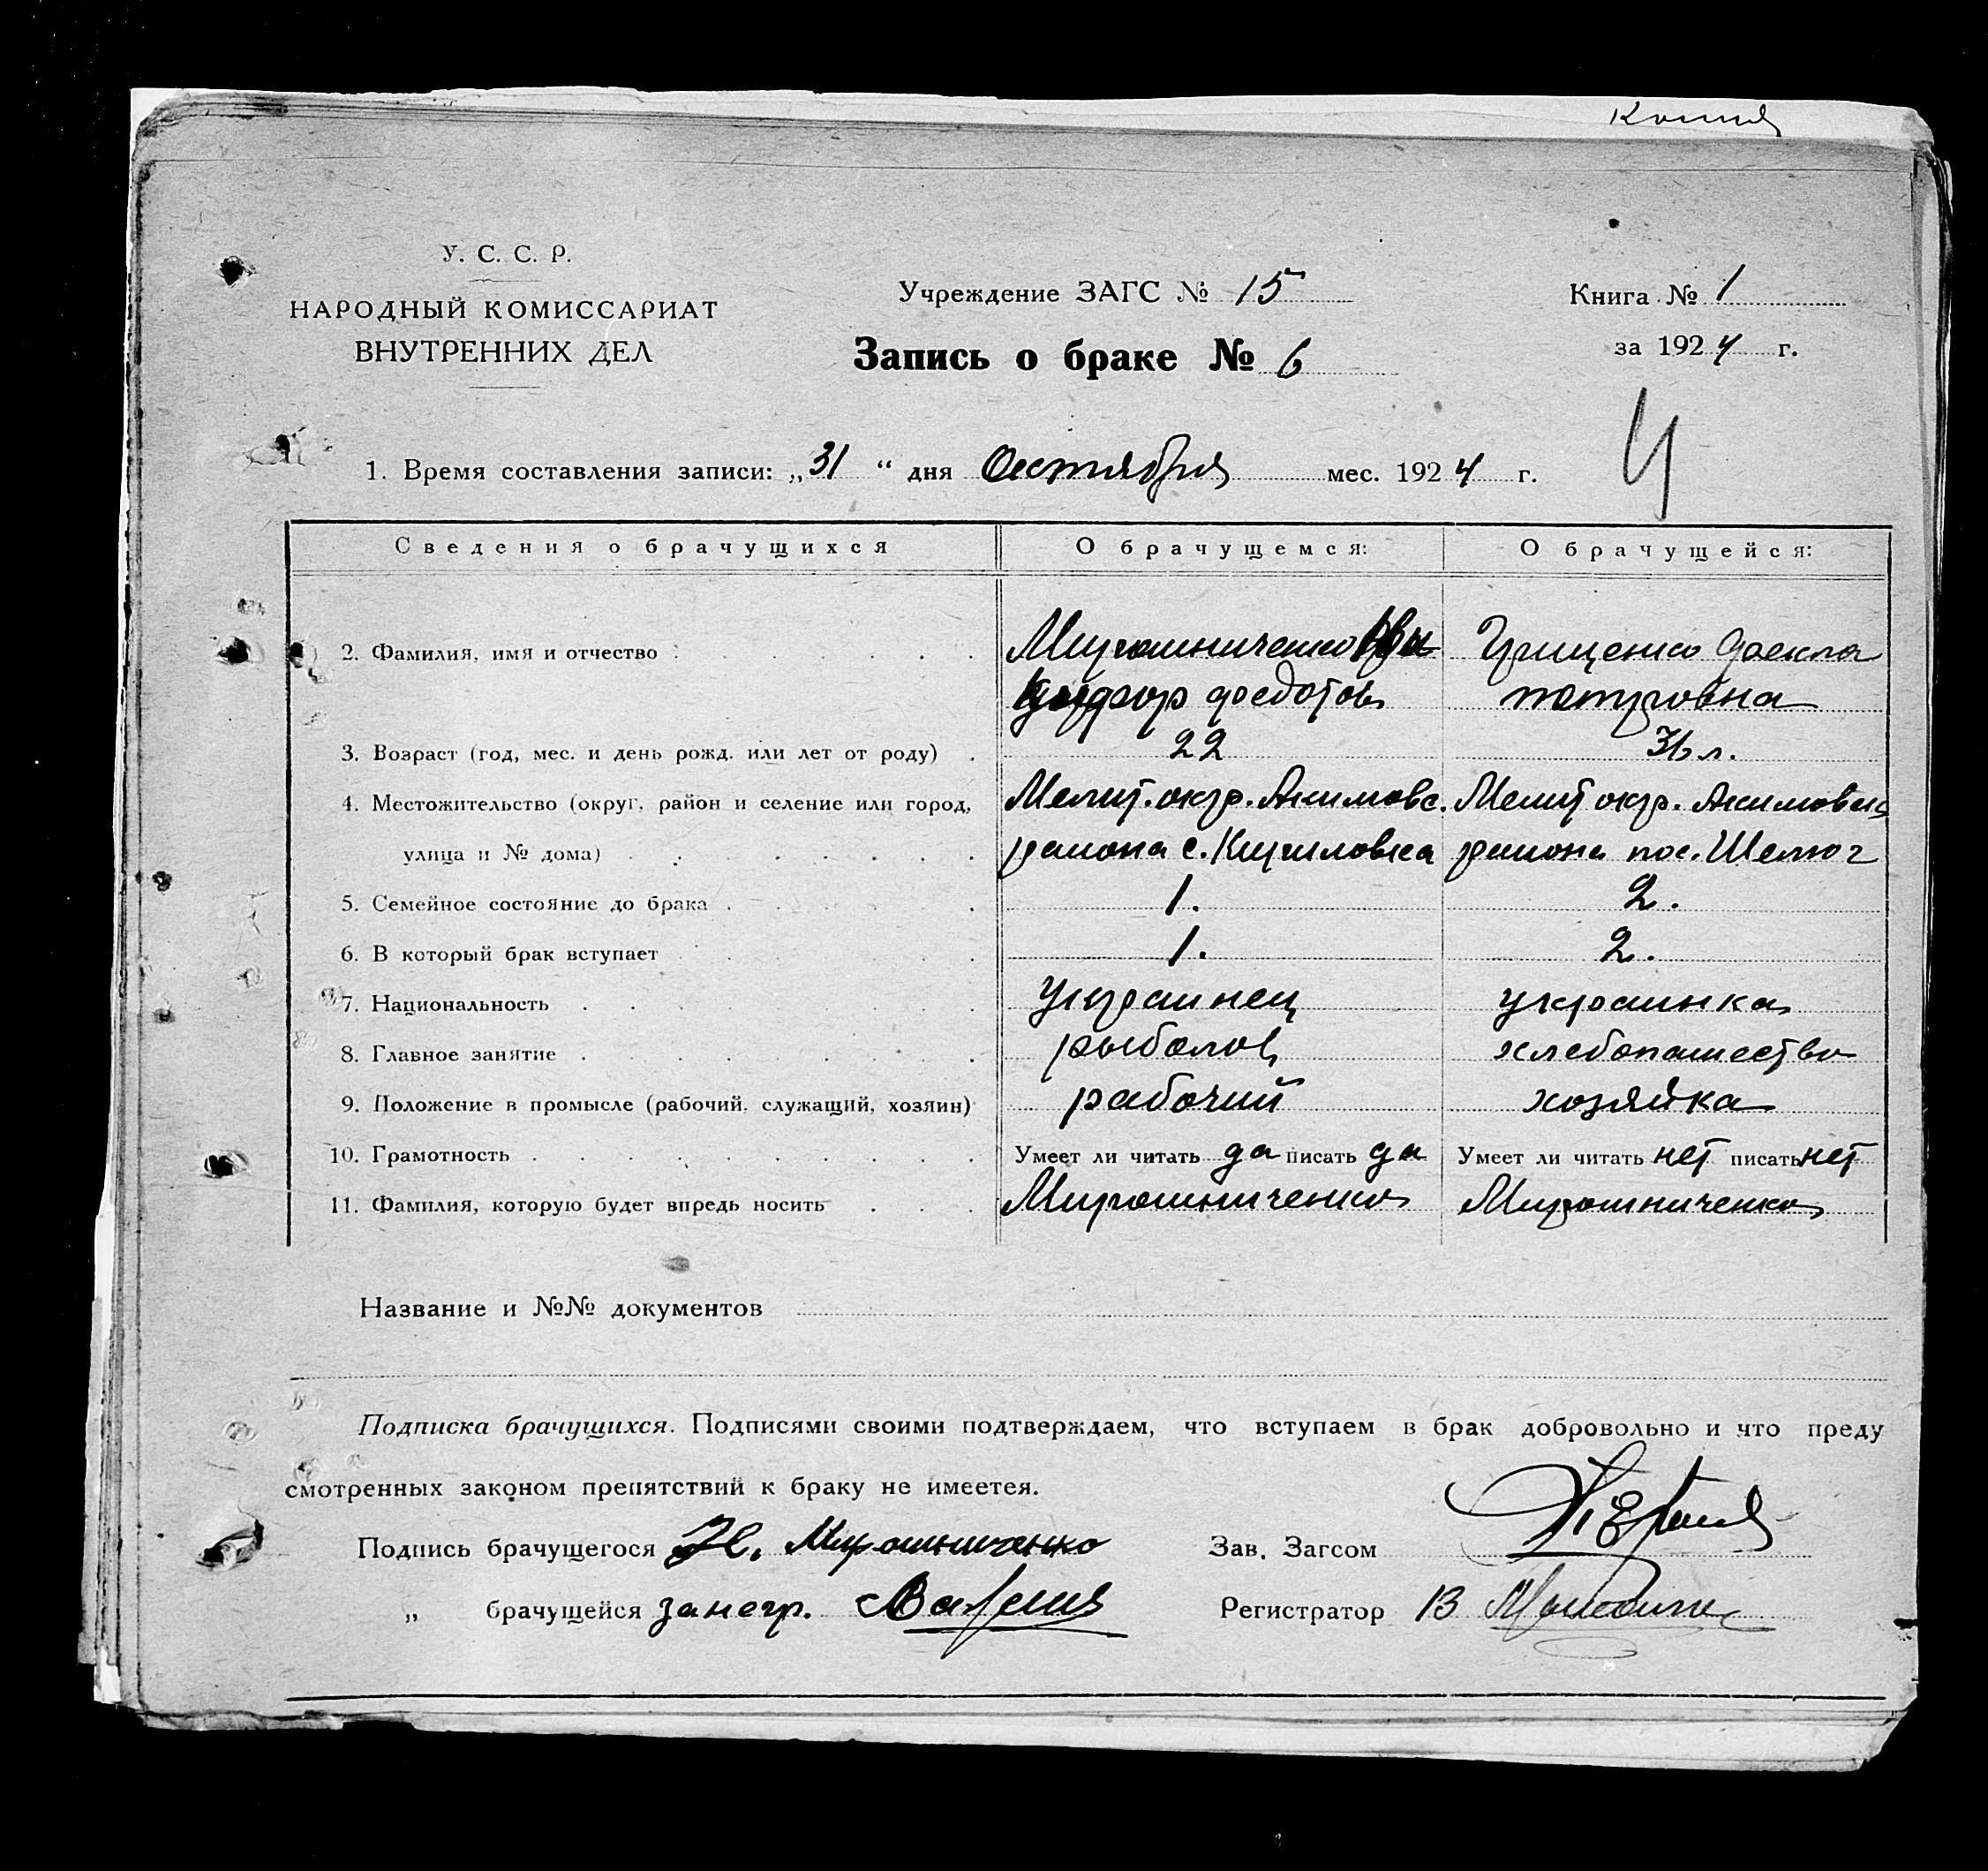 Копия
У. С. С. Р.
НАРОДНЫЙ КОМИССАРИАТ
ВНУТРЕННИХ ДЕЛ
Учреждение ЗАГС № 15
Запись о браке № 6
Книга № 1
за 1924 г.
4
1. Время составления записи: „31“ дня Октября мес. 1924 г.
Сведения о брачущихся О брачущемся: О брачущейся:
2. Фамилия, имя и отчество Мирошниченко Грищенко Фекла
федотов петровна
3. Возраст (год, мес. и день рожд. или лет от роду) 22 36 л.
4. Местожительство (округ, район и селение или город, Мелит. окр. Акимовс. Мелит окр. Акимовск
улица и № дома) района с. Кирилловка района пос. Шелюг
5. Семейное состояние до брака 1. 2.
6. В который брак вступает 1. 2.
7. Национальность украинец украинка
8. Главное занятие рыболов хлебопашество
9. Положение в промысле (рабочий, служащий, хозяин) рабочий хозяйка
10. Грамотность Умеет ли читать да писать да Умеет ли читать нет писать нет
11. Фамилия, которую будет впредь носить Мирошниченко Мирошниченко
Название и №№ документов
Подписка брачущихся. Подписями своими подтверждаем, что вступаем в брак добровольно и что преду
смотренных законом препятствий к браку не имеетея.
Подпись брачущегося Н. Мирошниченко Зав. Загсом
„ брачущейся занегр. Регистратор В